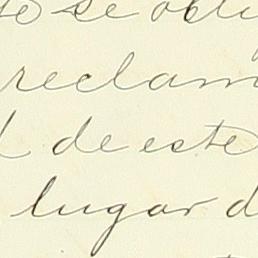 se obli
reclam
de este
lugar d